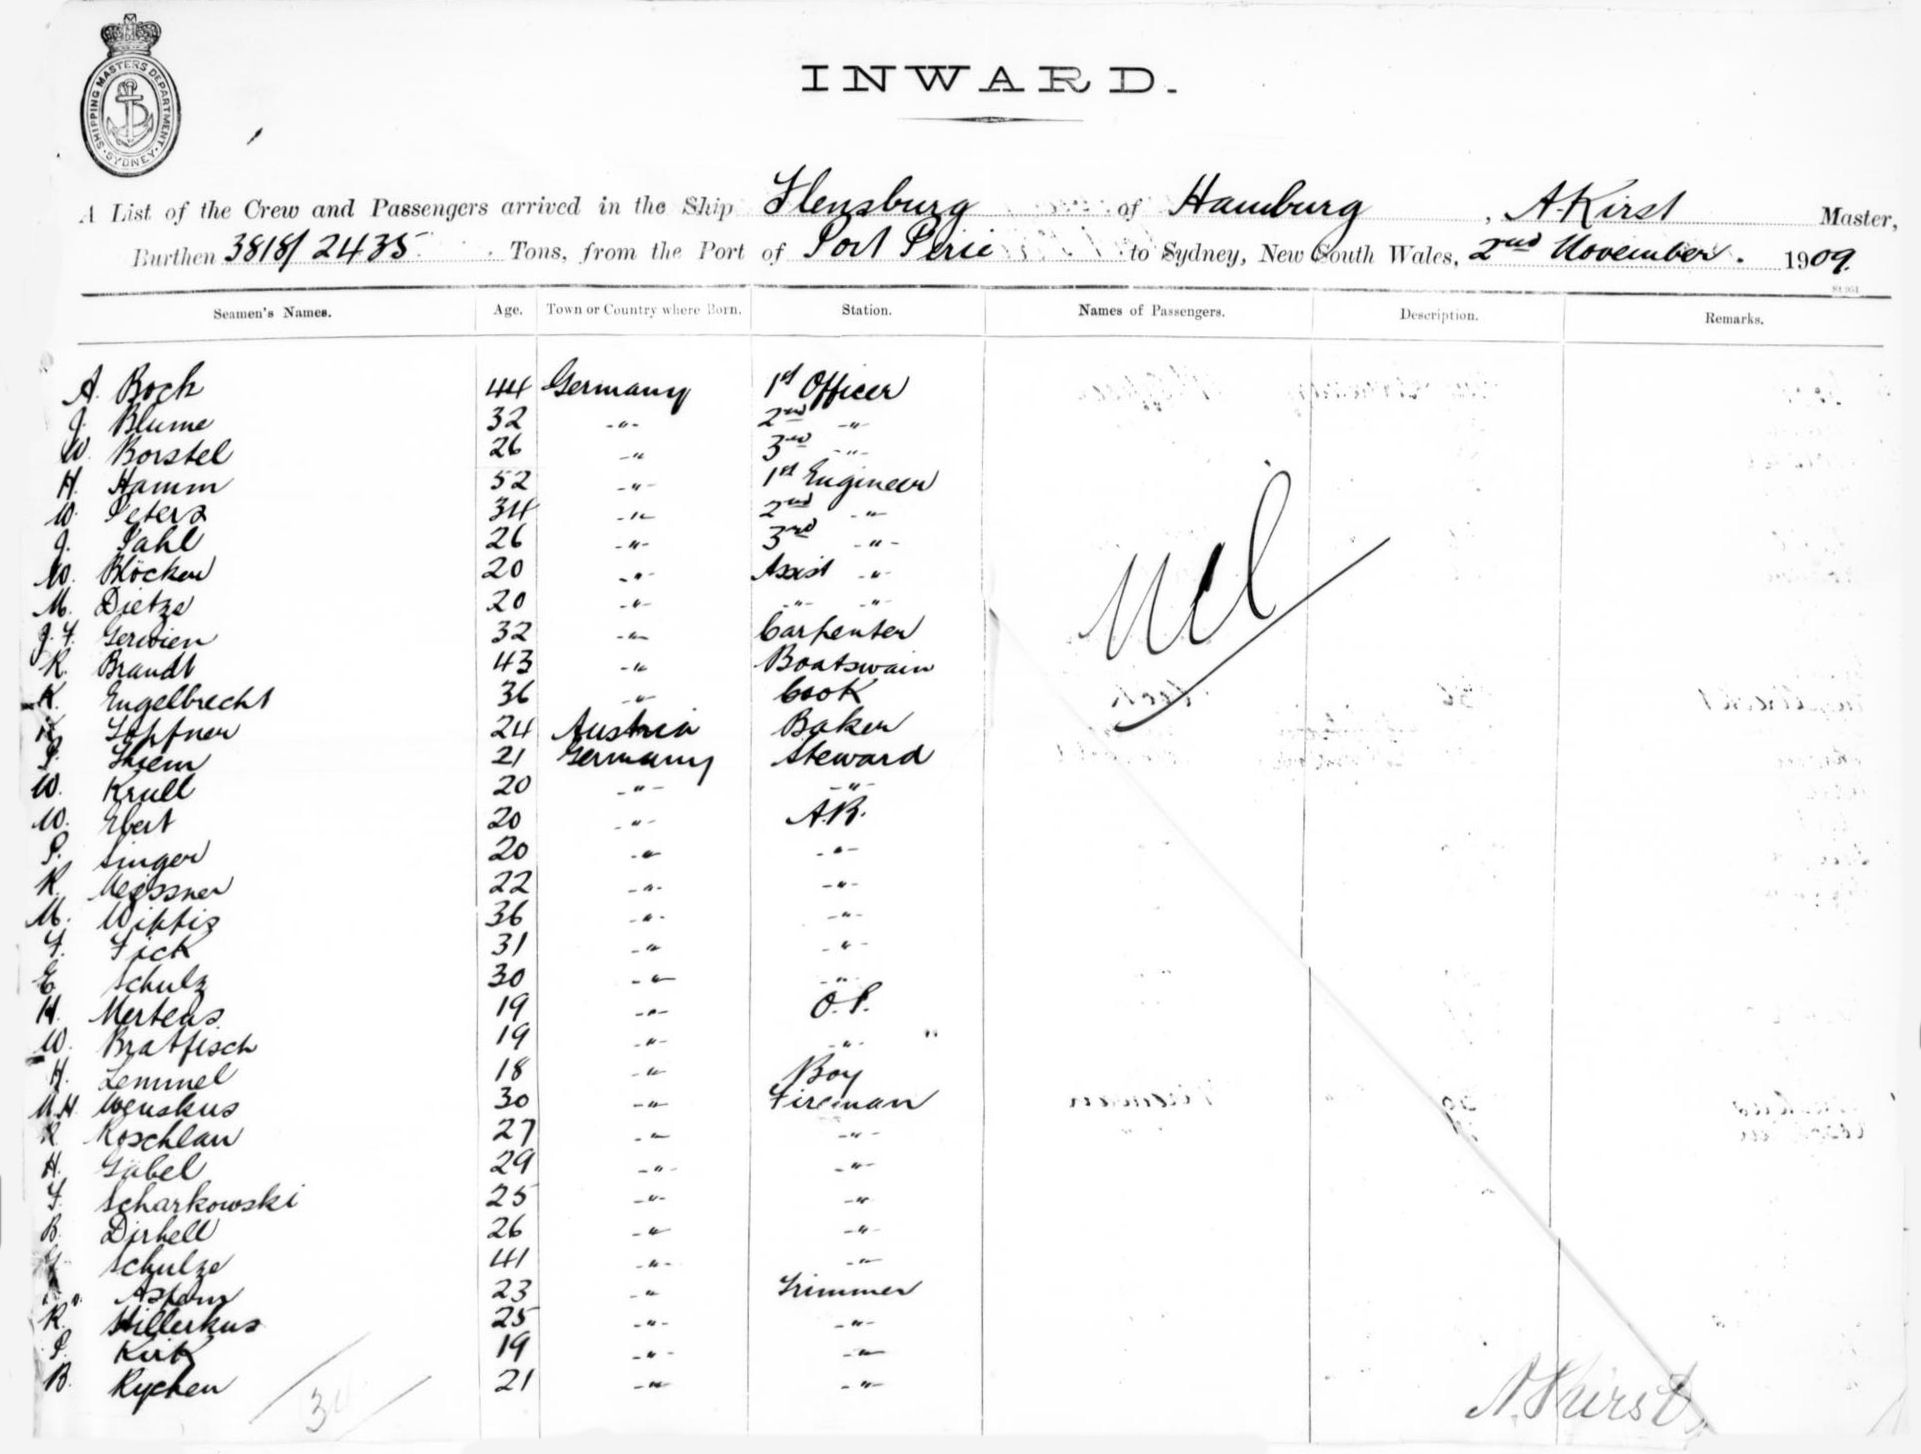 SHIPPING MASTERS DEPARTMENT · SYDNEY ·
INWARD.
A List of the Crew and Passengers arrived in the Ship Flensburg of Hamburg, A. Kirst Master,
Burthen 3818/2435 Tons, from the Port of Port Pirie to Sydney, New South Wales, 2nd November. 1909.
Seamen's Names. Age. Town or Country where Born. Station. Names of Passengers. Description. Remarks.
A. Bock 44 Germany 1st Officer
J. Blume 32 -"- 2nd -"-
W. Borstel 26 -"- 3rd -"-
H. Hamm 52 -"- 1st Engineer
W. Peters 34 -"- 2nd -"-
J. Pahl 26 -"- 3rd -"-
W. Blöcker 20 -"- Assist -"-
M. Dietze 20 -"- -"- -"-
J. F. Gerwien 32 -"- Carpenter
R. Brandt 43 -"- Boatswain
K. Engelbrecht 36 -"- Cook
24 Austria Baker
P. Thiem 21 Germany Steward
W. Krull 20 -"- -"-
W. Ebert 20 -"- A.B.
P. Singer 20 -"- -"-
R. Meissner 22 -"- -"-
M. 36 -"- -"-
F. Fick 31 -"- -"-
E. Schulz 30 -"- -"-
H. Mertens 19 -"- O.S.
W. Bratfisch 19 -"- -"-
H. Lemmel 18 -"- Boy
M. H. Wenskus 30 -"- Fireman
R. Koschlau 27 -"- -"-
H. Gäbel 29 -"- -"-
F. Scharkowski 25 -"- -"-
B. 26 -"- -"-
Schulze 41 -"- -"-
23 -"- Trimmer
R. Hillerkus 25 -"- -"-
P. Kirk 19 -"- -"-
B. Rychen 21 -"- -"-
Nil
A. Kirst